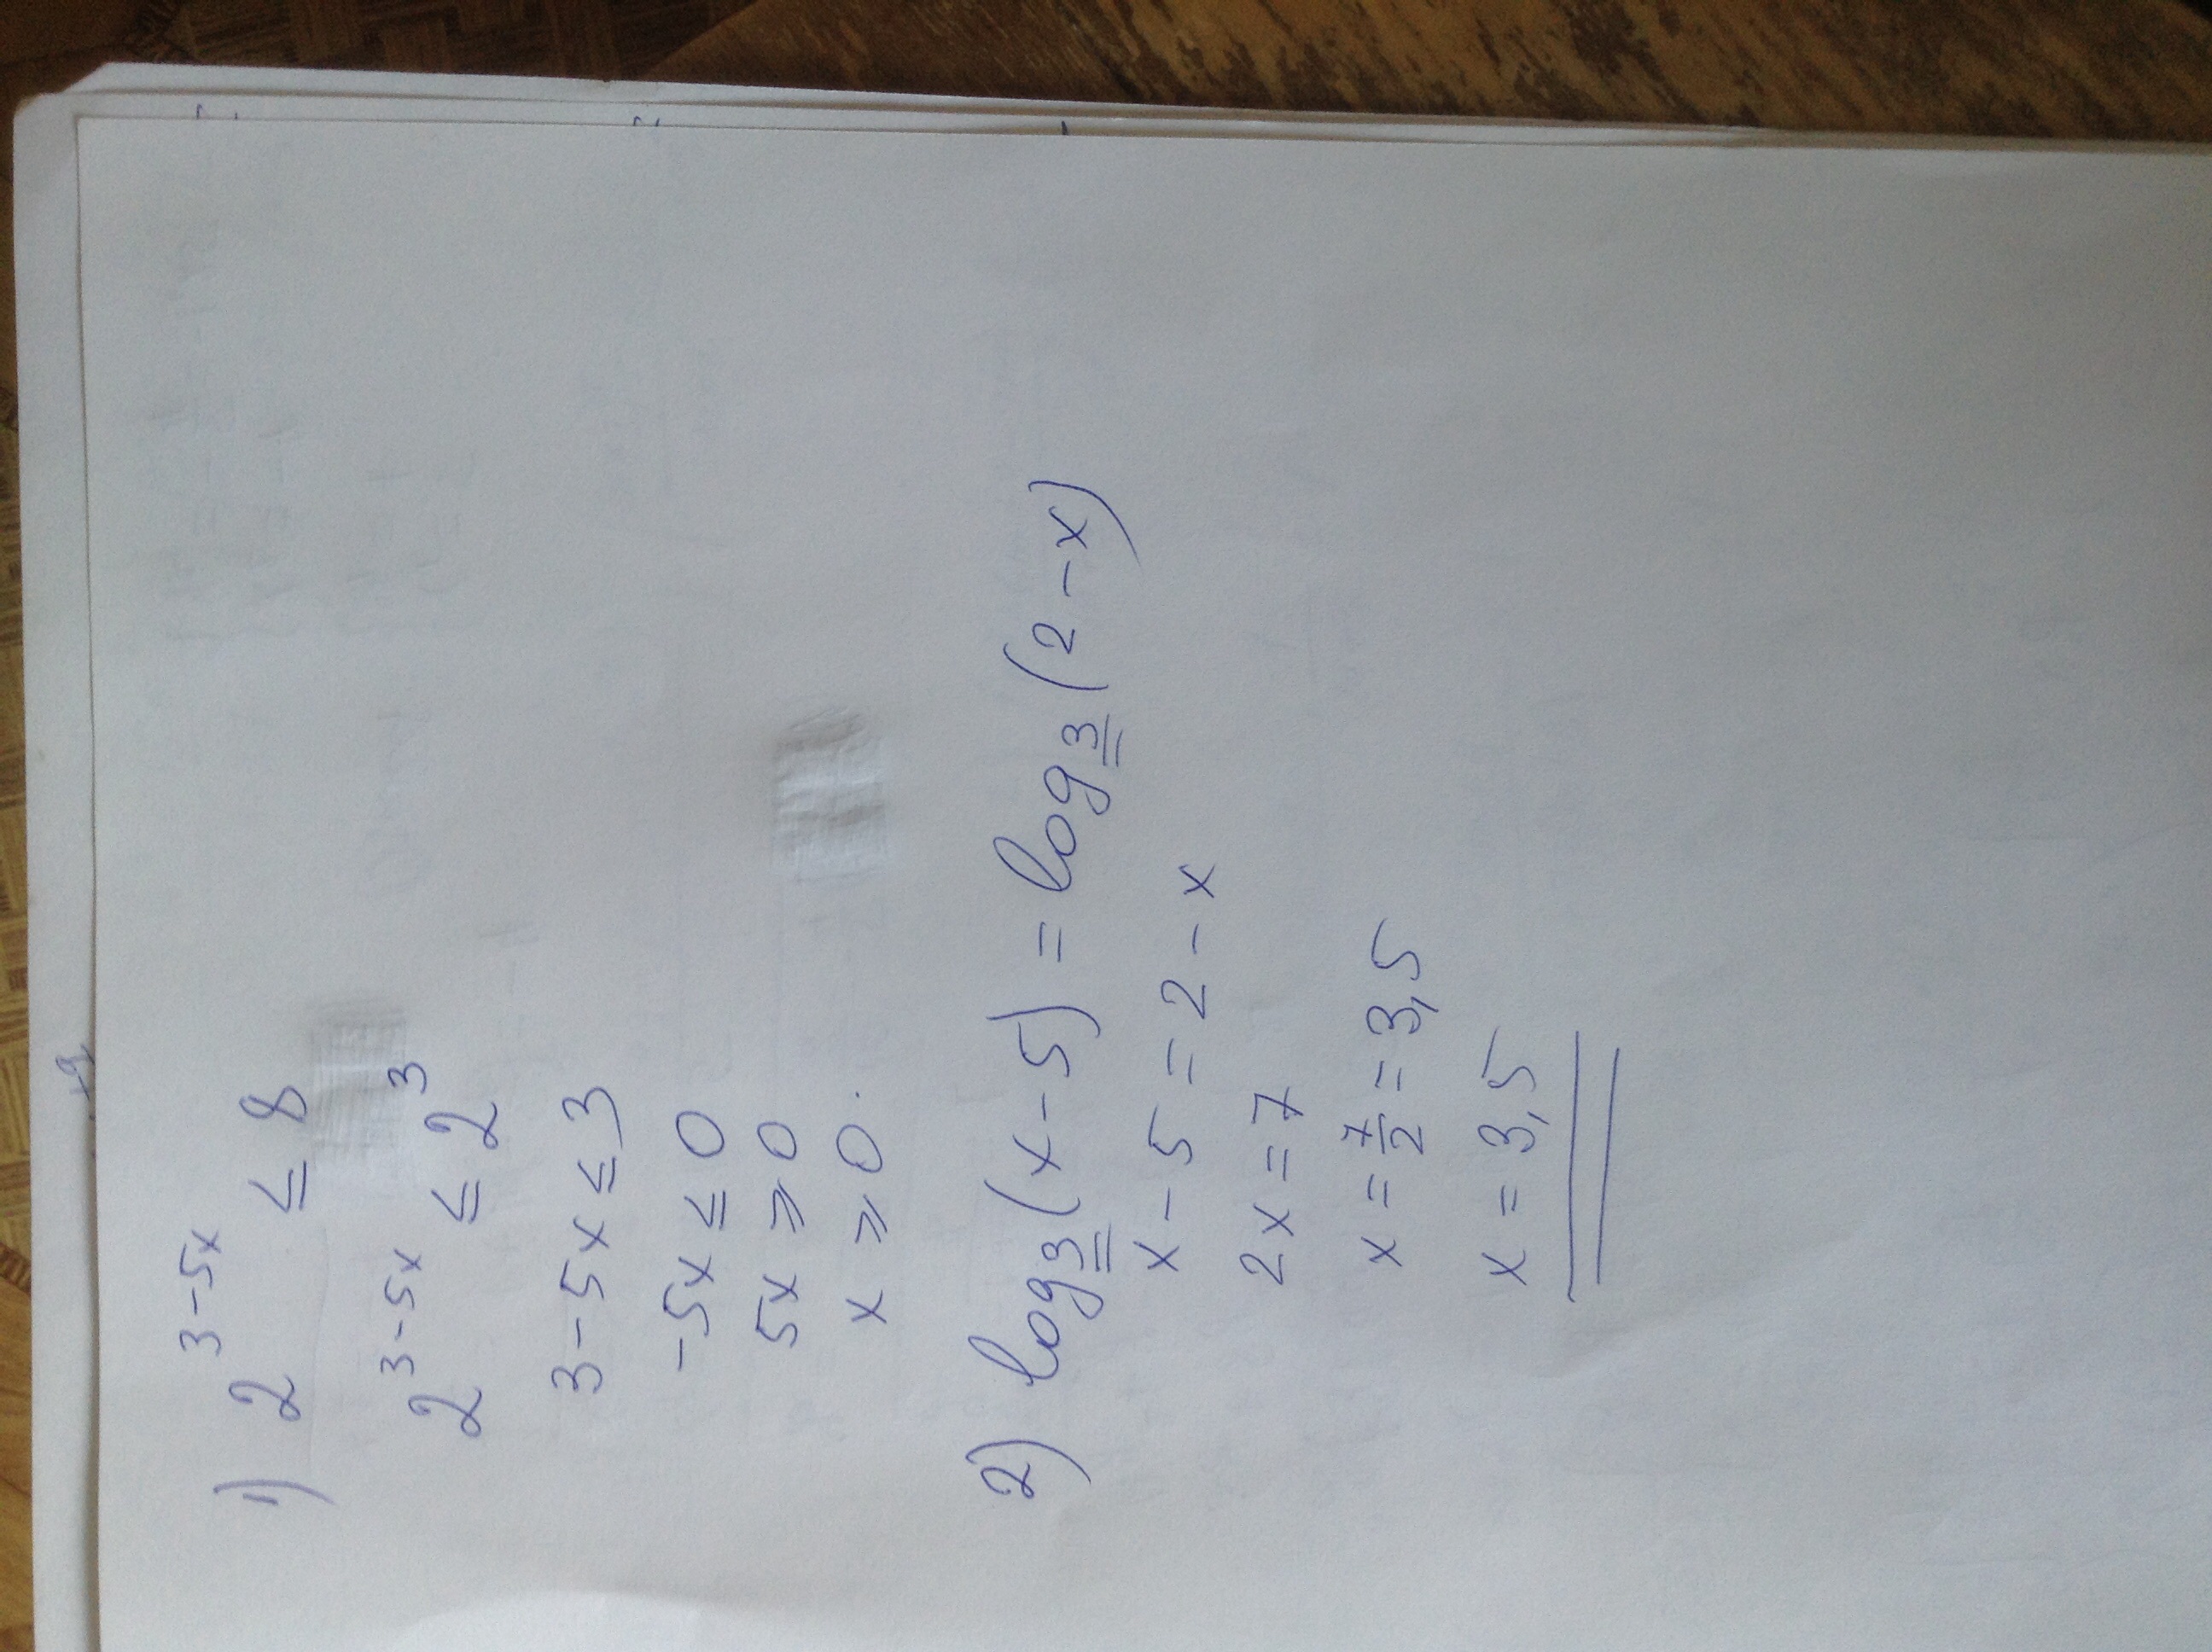 1) 2^{3-5x} ≤ 8
2^{3-5x} ≤ 2^3
3-5x ≤ 3
-5x ≤ 0
5x ⩾ 0
x ⩾ 0.
2) log_3(x-5) = log_3(2-x)
x-5 = 2-x
2x = 7
x = 7/2 = 3,5
x = 3,5